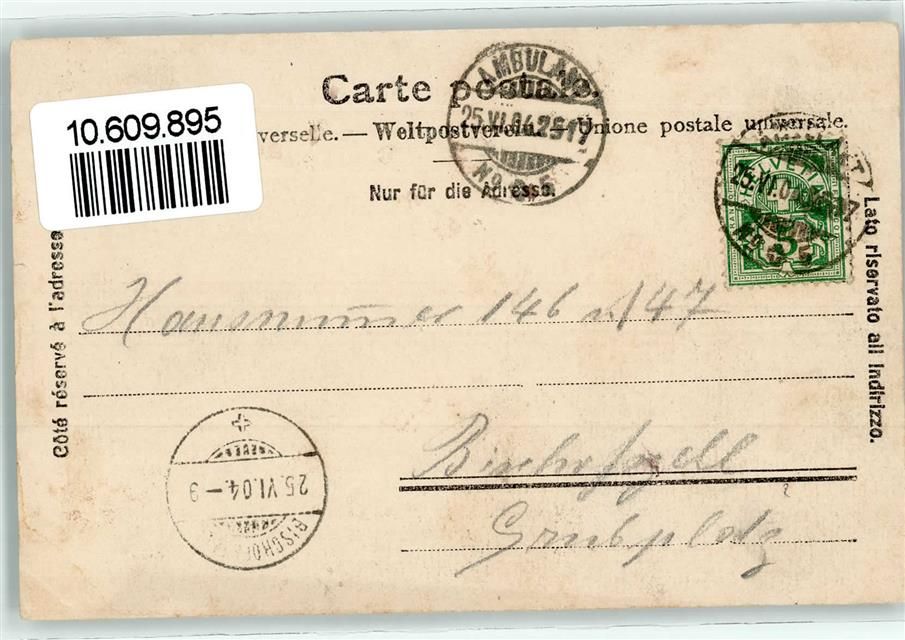 Carte postale.
10.609.895
verselle. — Weltpostverein. — Unione postale universale.
Nur für die Adresse.
AMBULANT
25.VI.04
No
HELVETIA
5
Côté réservé à l'adresse
Lato riservato all indirizzo.
Hausnummer 146 u/147
Bischofszell
Grubplatz
25.VI.04-9
BISCHOF